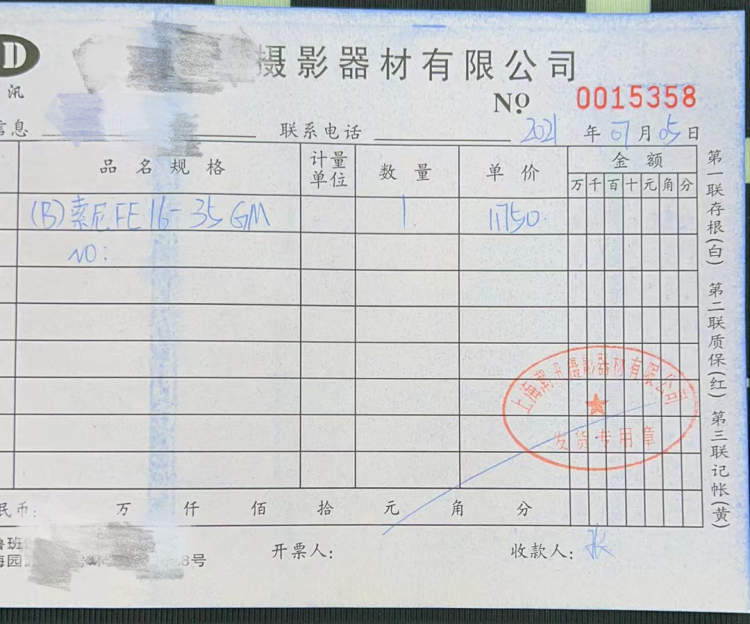 D
讯
摄影器材有限公司
No 0015358
信息 联系电话 2021年07月05日
品名规格 计量单位 数量 单价 金额
万 千 百 十 元 角 分
(B)索尼FE 16-35 GM 1. 11750.
NO:
第一联存根(白) 第二联质保(红) 第三联记帐(黄)
摄影器材有限公司
发货专用章
民币: 万 仟 佰 拾 元 角 分
鲁班
海园 8号
开票人: 收款人: 张